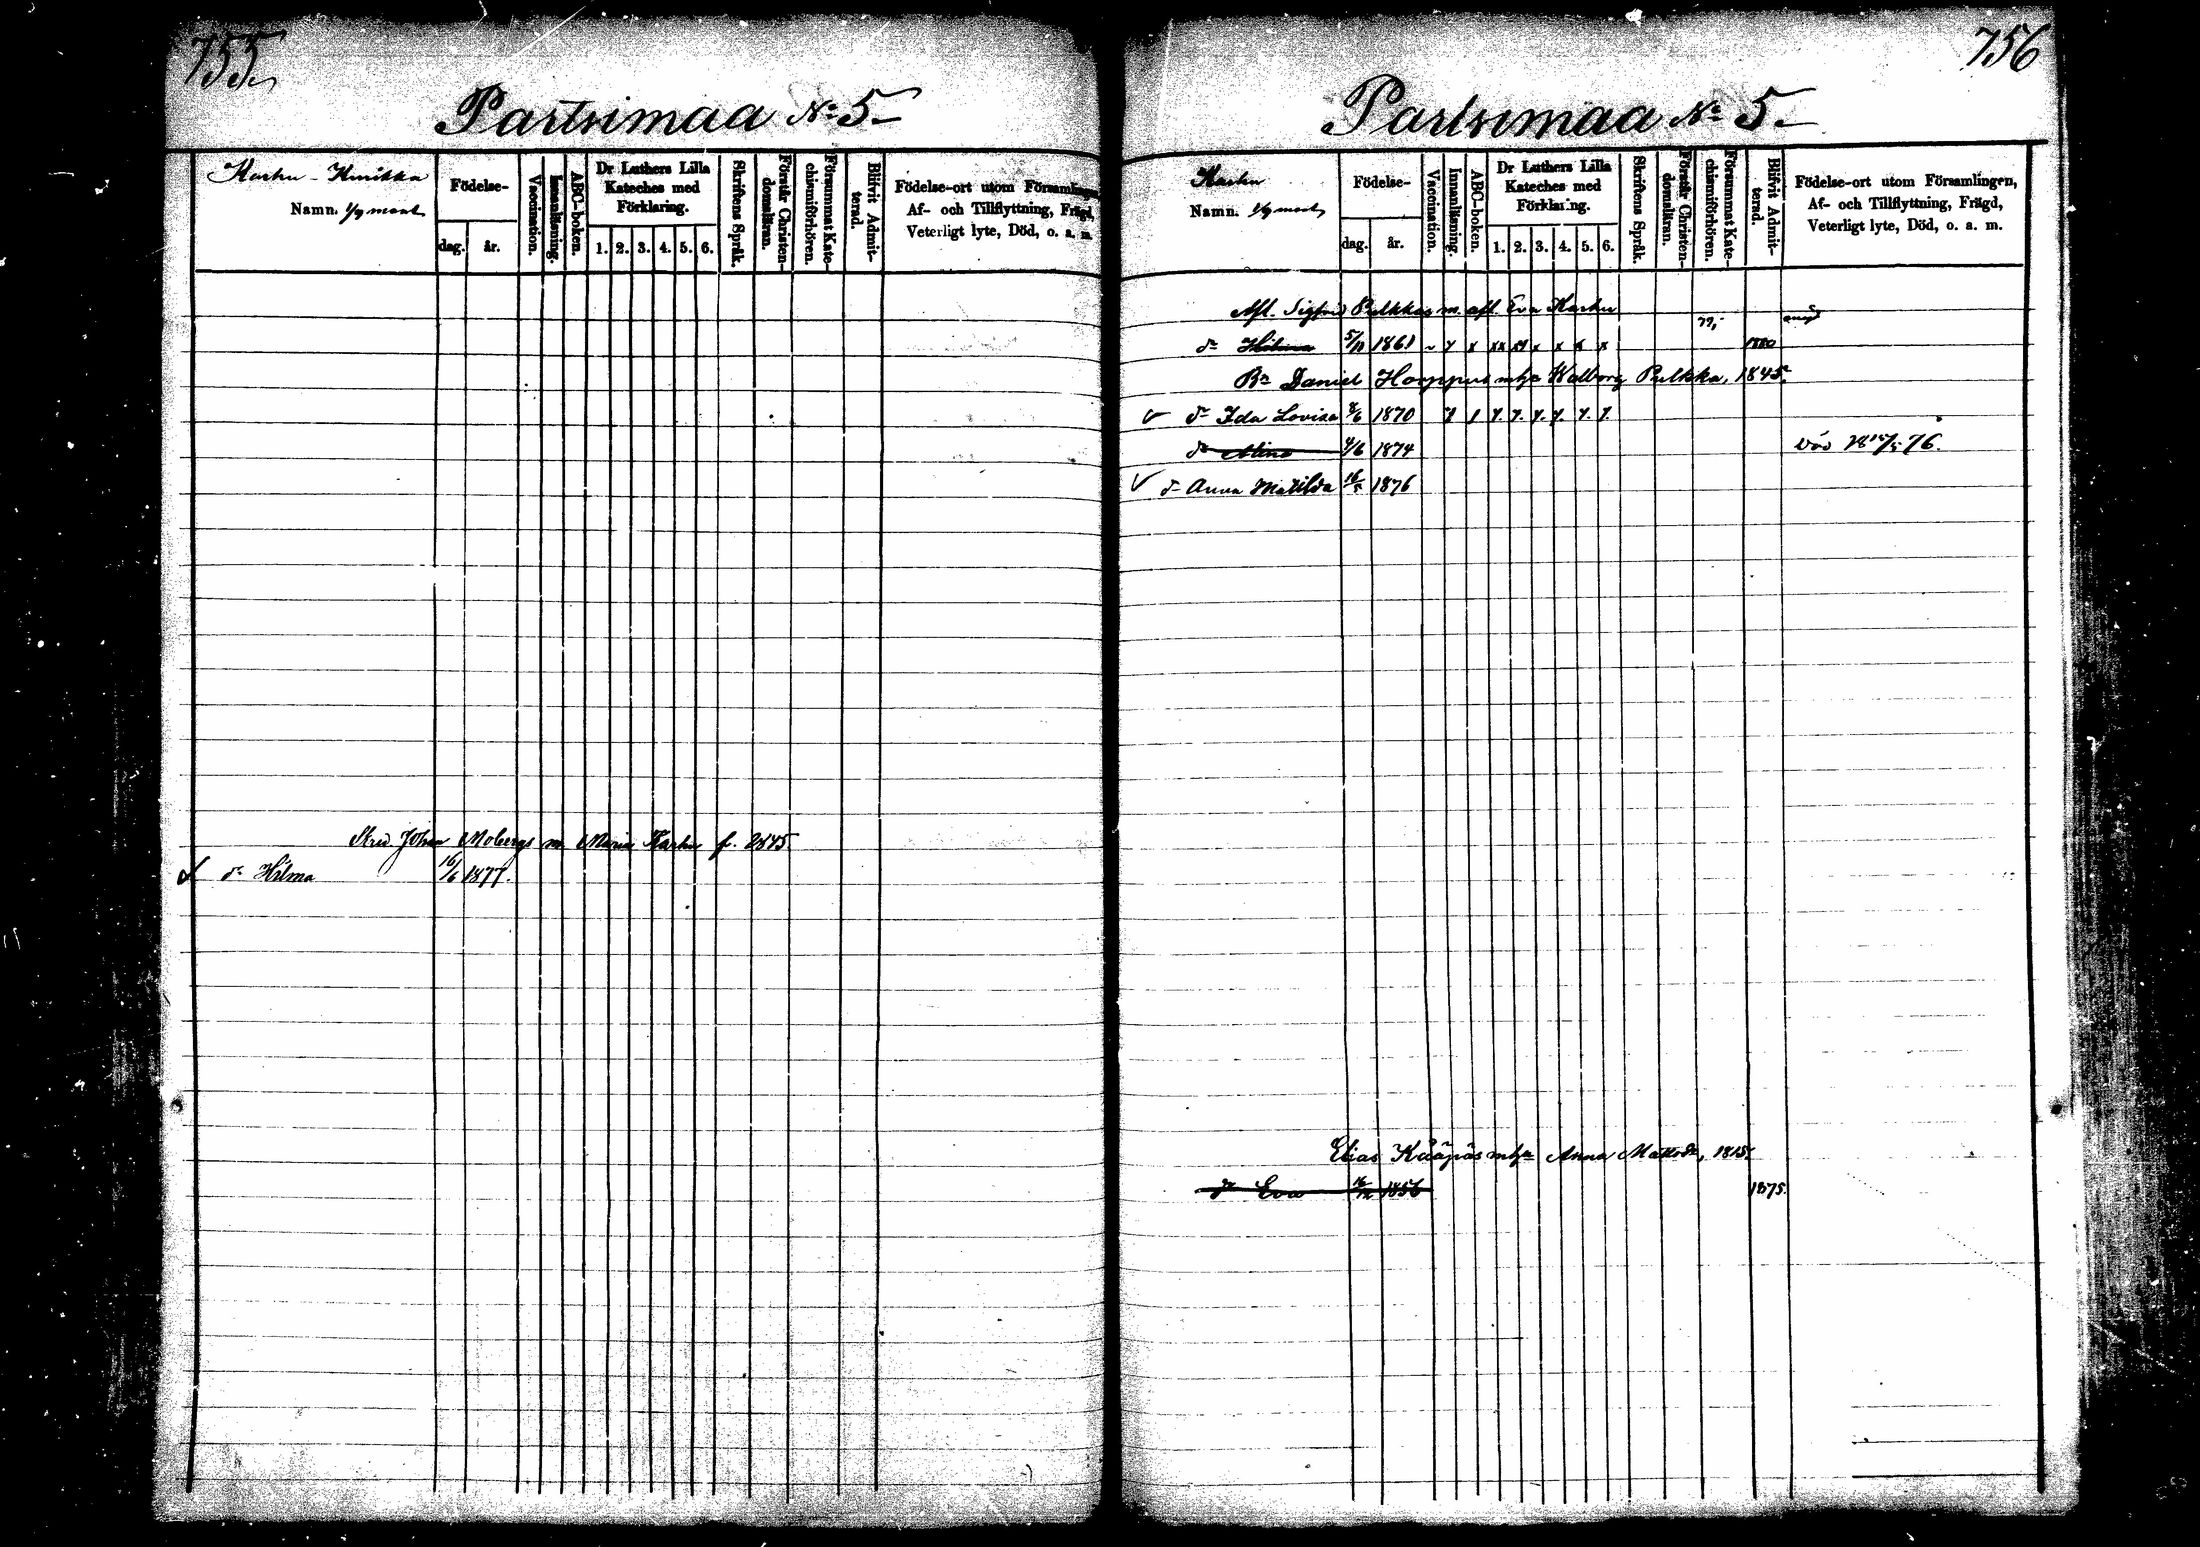 755
Partsimaa No 5
Karhu - Knrikka
Namn. 1/4 mant
Födelse-
dag. år.
Vaccination.
Innanläsning.
ABC-boken.
Dr Luthers Lilla Kateches med Förklaring.
1. 2. 3. 4. 5. 6.
Skriftens Språk.
Förstår Christendomsläran.
Försummat Katechismiförhören.
Blifvit Admitterad.
Födelse-ort utom Församlingen,
Af- och Tillflyttning, Frägd,
Veterligt lyte, Död, o. a. m.
Johan Mobergs m. Maria Karhu f. 2845.
dr Hilma 16/6 1877.
756
Partsimaa No 5.
Karhu
Namn. 1/4 mant
Födelse-
dag. år.
Vaccination.
Innanläsning.
ABC-boken.
Dr Luthers Lilla
Kateches med
Förklaring.
1. 2. 3. 4. 5. 6.
Skriftens Språk.
Förstår Christen-
domsläran.
Försummat Kate-
chismiförhören.
Blifvit Admit-
terad.
Födelse-ort utom Församlingen,
Af- och Tillflyttning, Frägd,
Veterligt lyte, Död, o. a. m.
Afl. Sigfrid Pulkkas m. afl. Eva Karhu
77,
dr Hilma 5/11 1861 x x xx x x x x 1880
Bn Daniel Hoppus m hu Walborg Pulkka, 1845.
dr Ida Lovisa 8/6 1870
dr Alina 4/6 1874 död 18 15/5 76.
dr Anna Matilda 16/5 1876
Elias Kääpäs m hu Anna Mattsdr, 1815.
dr Eva 16/12 1856 1875.